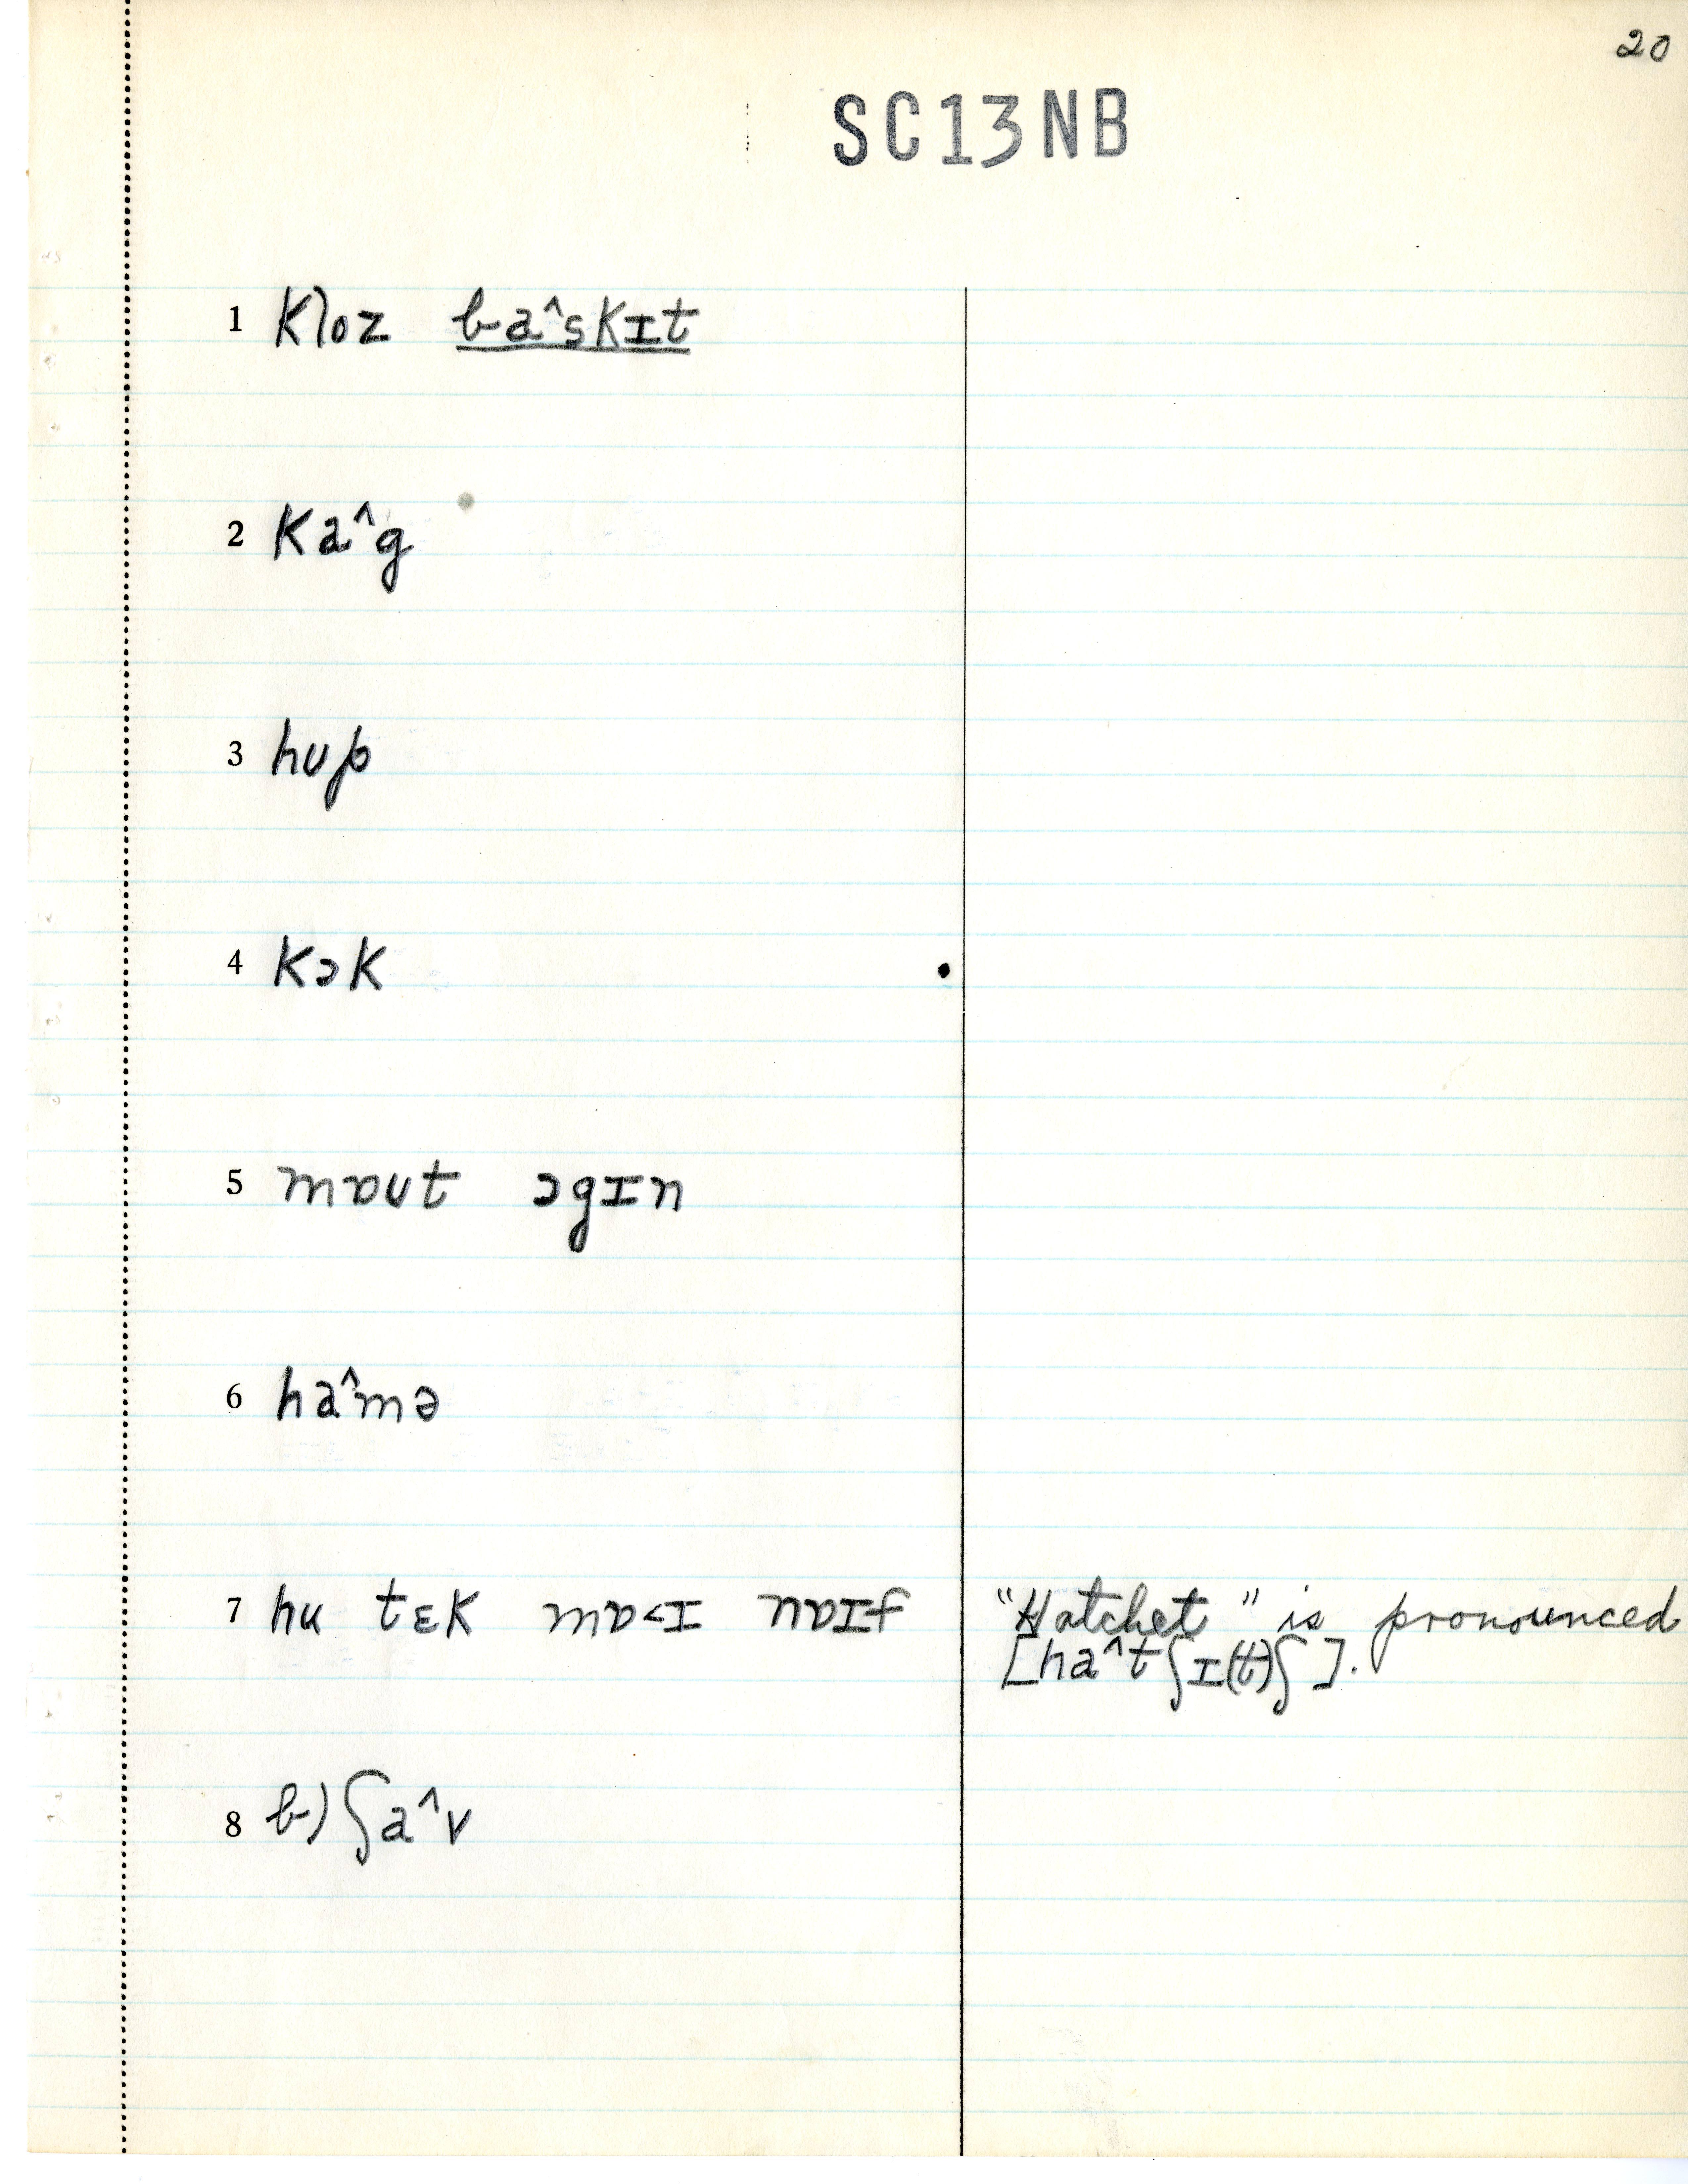 20
SC13NB
1 kloz ba^skɪt
2 ka^g
3 hʊp
4 kɔk
5 mɒʊt ɔgɪn
6 ha^mə
7 hu tɛk mɒ<ɪ nɒɪf
"Hatchet" is pronounced
[ha^tʃɪ(t)ʃ].
8 b) ʃa^v